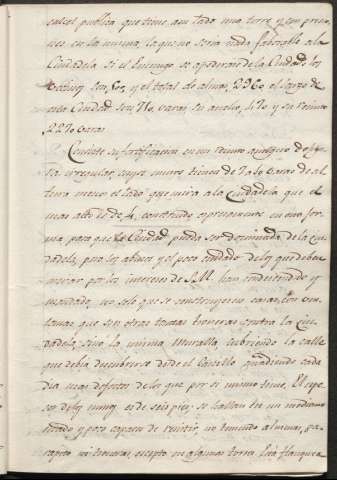 carcel publica que tiene a un lado una torre, y con precio
nes en la misma, lo que no seria nada faborable a la
Ciudadela si el Enemigo se apoderàse de la Ciudad, los
vecinos son, y el total de almas, 2960, el largo de
esta Ciudad son 710 varas su ancho, 470 y su recinto
2270 varas
Consiste su fortificacion en un recinto antiguo de
irregular, cuyos muros tienen de 7 a 10 varas de al
tura menos el lado que mira a la Ciudadela que el
mas alto es de 4, construido expresamente en esta for
ma para que la Ciudad pueda ser dominada de la Ciu
dadela, pero los abusos y el poco cuidado de los que deben
mirar por los intereses de S.M. han condescendido y
mandado, no solo que se construyesen casas, con ven
tanas que son otras tantas troneras contra la Ciu
dadela, sino la misma Muralla, cubriendo la calle
que debia descubrirse desde el Castillo añadiendo cada
dia mas defectos de los que por si mismo tiene, El espe
sor de los muros es de seis pies; se hallan en un mediano
estado y poco capaces de resistir, no teniendo almenas, pa
rapeto ni troneras, excepto en algunas torres